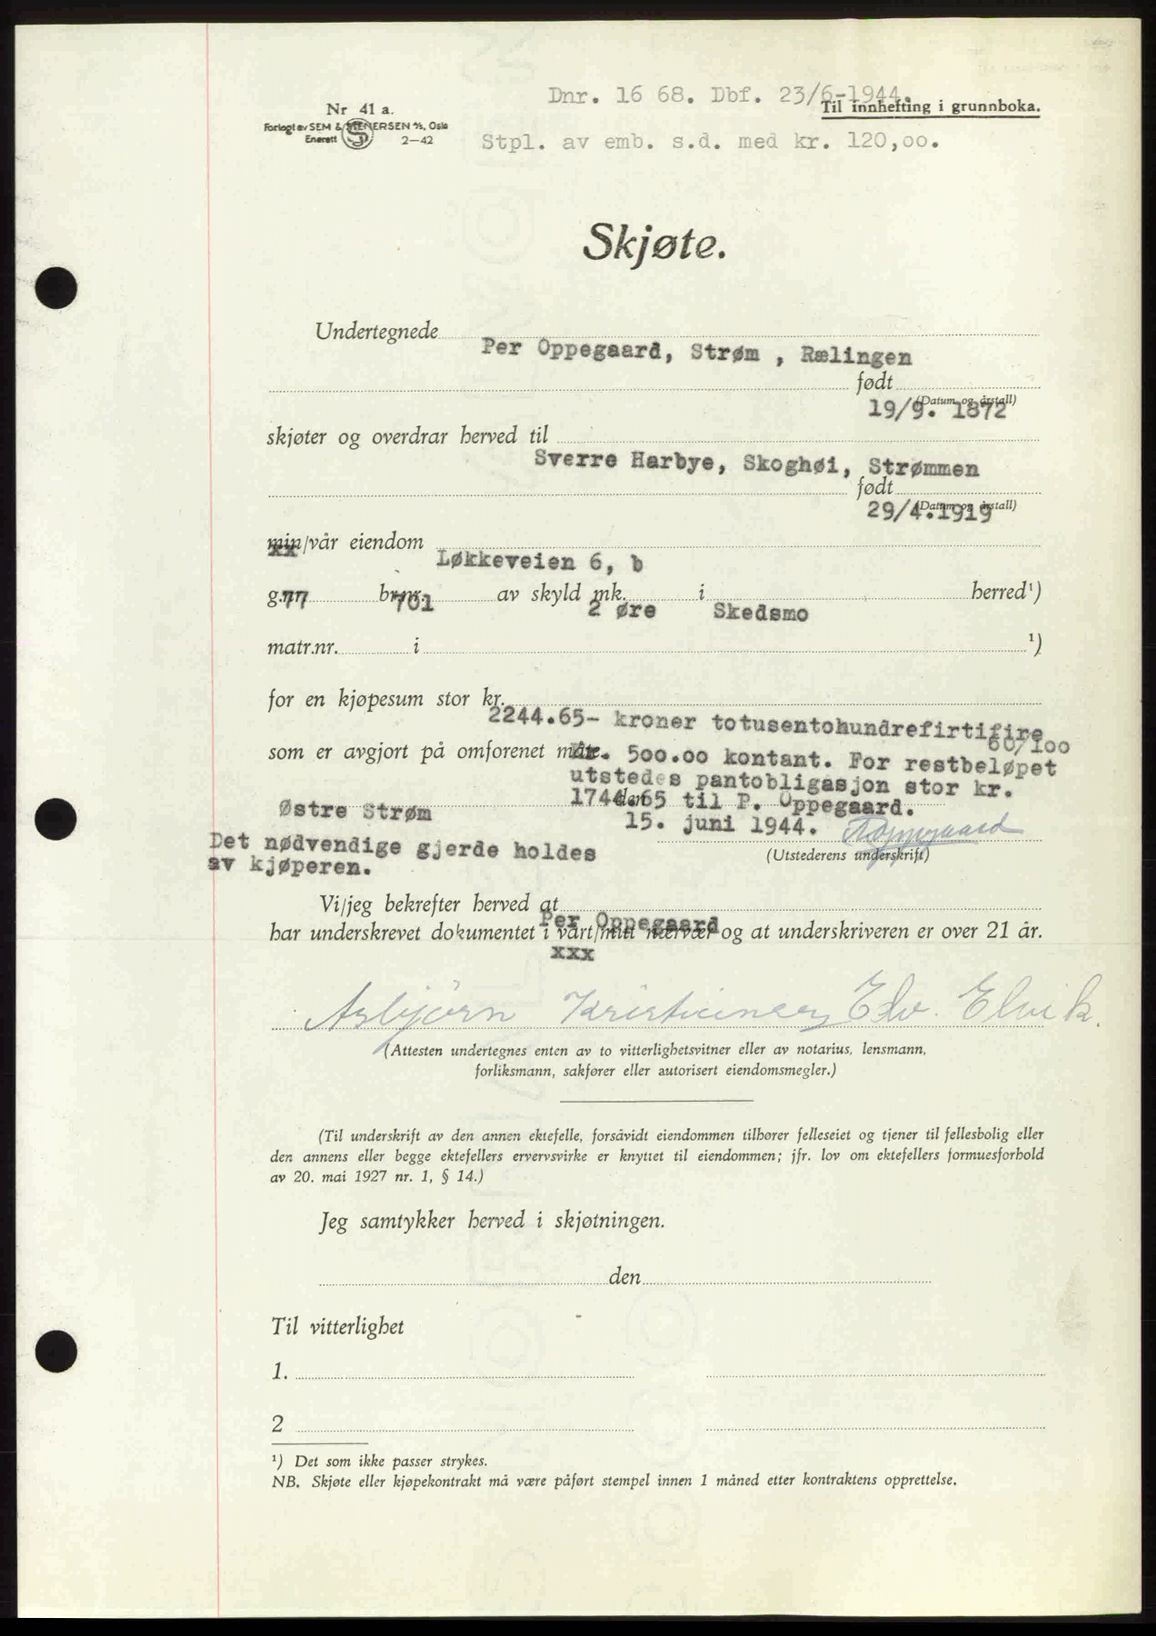 Dnr. 16 68. Dbf. 23/6-1944.
Nr 41 a.
Til innhefting i grunnboka.
Forlagt av SEM & STENERSEN A/S, Oslo
Enerett 2—42
Stpl. av emb. s.d. med kr. 120,oo.
Skjøte.
Undertegnede
Per Oppegaard, Strøm , Rælingen
født
19/9. 1872
(Datum og årstall)
skjøter og overdrar herved til
Sverre Harbye, Skoghøi, Strømmen
født
29/4.1919
(Datum og årstall)
min/vår eiendom
Løkkeveien 6, b
g.nr. 77 br.nr. 701 av skyld mk. 2 øre i Skedsmo herred¹)
matr.nr. i ¹)
for en kjøpesum stor kr.
2244.65- kroner totusentohundrefirtifire
60/100
som er avgjort på omforenet måte. Kr. 500.00 kontant. For restbeløpet
utstedes pantobligasjon stor kr.
1744.65 til P. Oppegaard.
Østre Strøm den 15. juni 1944. P. Oppegaard
Det nødvendige gjerde holdes
av kjøperen.
(Utstederens underskrift)
Vi/jeg bekrefter herved at
Per Oppegaard
har underskrevet dokumentet i vårt/mitt nærvær og at underskriveren er over 21 år.
xxx
Asbjörn Kristiansen Elv. Elvik.
(Attesten undertegnes enten av to vitterlighetsvitner eller av notarius, lensmann,
forliksmann, sakfører eller autorisert eiendomsmegler.)
(Til underskrift av den annen ektefelle, forsåvidt eiendommen tilhører felleseiet og tjener til fellesbolig eller
den annens eller begge ektefellers ervervsvirke er knyttet til eiendommen; jfr. lov om ektefellers formuesforhold
av 20. mai 1927 nr. 1, § 14.)
Jeg samtykker herved i skjøtningen.
den
Til vitterlighet
1.
2
¹) Det som ikke passer strykes.
NB. Skjøte eller kjøpekontrakt må være påført stempel innen 1 måned etter kontraktens opprettelse.